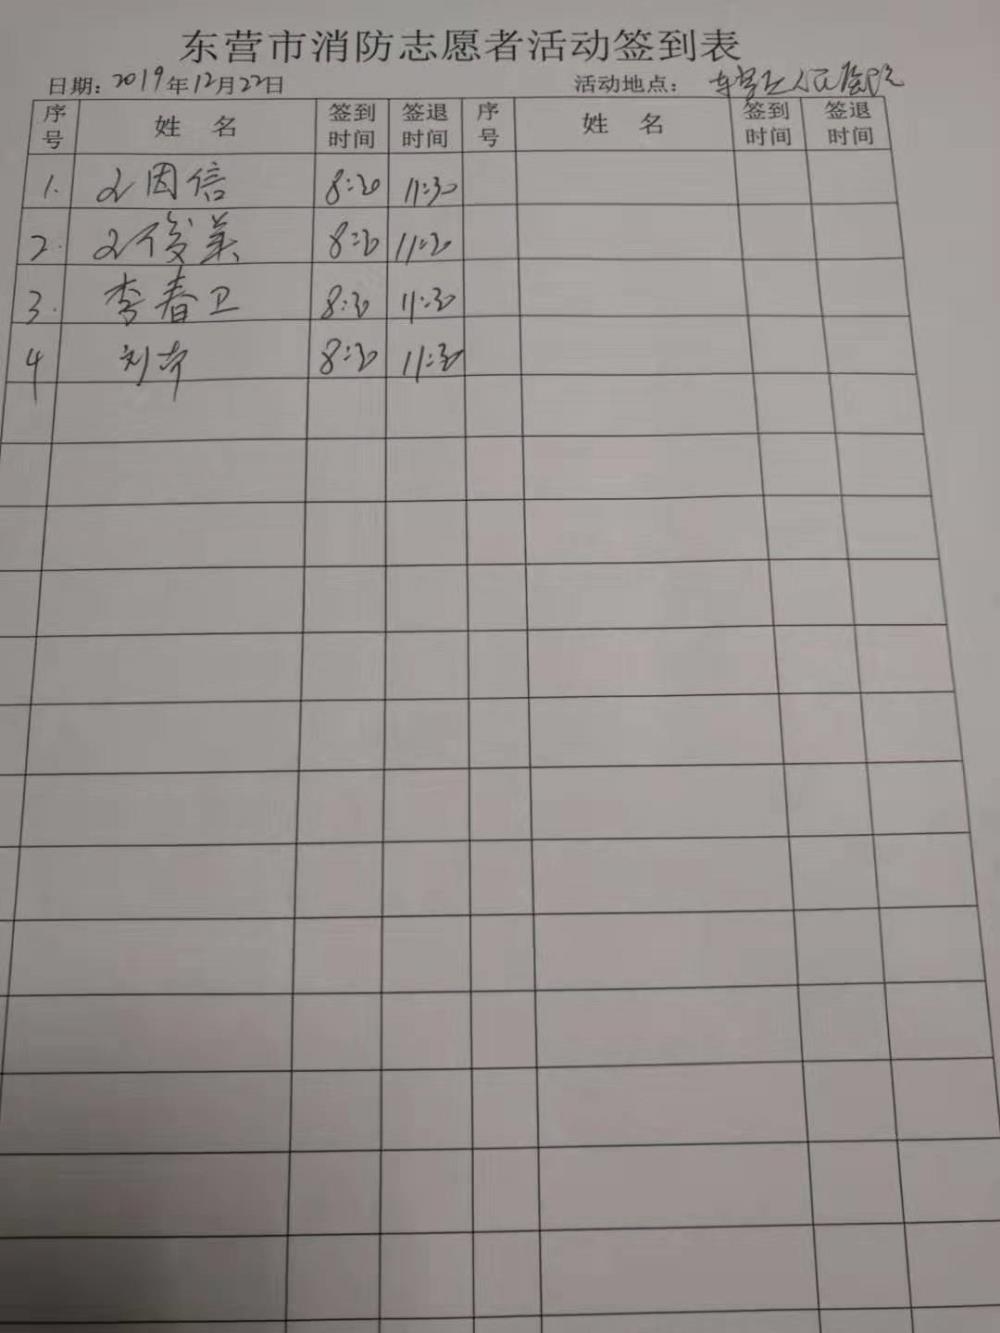 东营市消防志愿者活动签到表
日期：2019年12月22日 活动地点：东营区人民医院
序号 姓 名 签到时间 签退时间 序号 姓 名 签到时间 签退时间
1. 因信 8:30 11:30
2. 俊美 8:30 11:30
3. 李春卫 8:30 11:30
4 刘 8:30 11:30